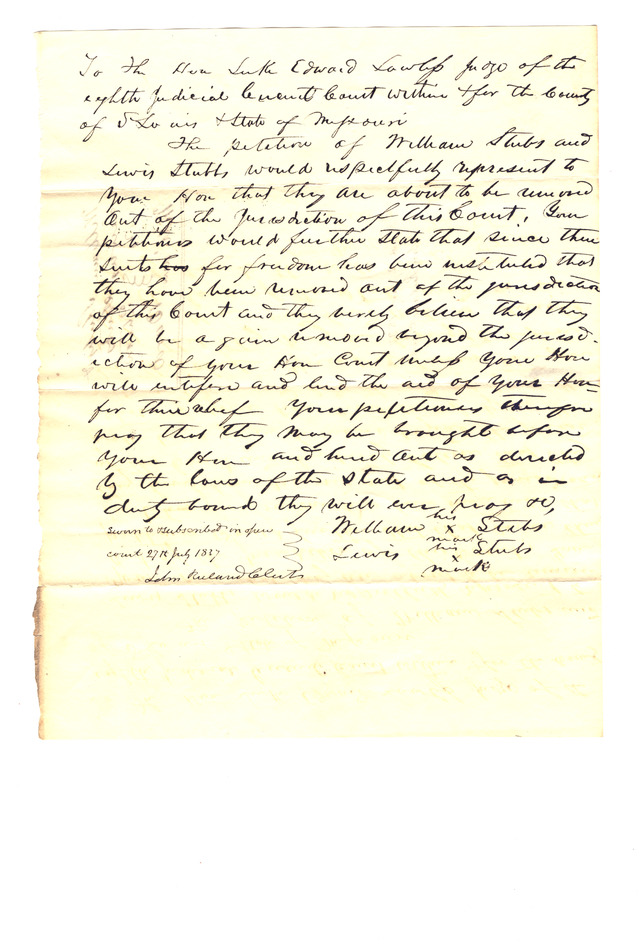 To the Hon Luke Edward Lawless Judge of the
eighth Judicial Circuit Court within & for the County
of St Louis & State of Missouri
The petition of William Stubs and
Lewis Stubbs would respectfully represent to
Your Hon that they are about to be removed
out of the Jurisdiction of this Court, Your
petitioners would further state that since their
suits has for freedom has been instituted that
they have been removed out of the jurisdiction
of this Court and they verily believe that they
will be again removed beyond the jurisd-
iction of your Hon Court unless Your Hon
will interfere and lend the aid of Your Hon
for their relief Your petitioners therefore
pray that they may be brought before
Your Hon and hired out as directed
by the laws of the State and as in
duty bound they will ever pray &c,
William his x mark Stubs
Lewis his x mark Stubs
Sworn to & subscribed in open
court 27th July 1837
John Ruland Clerk